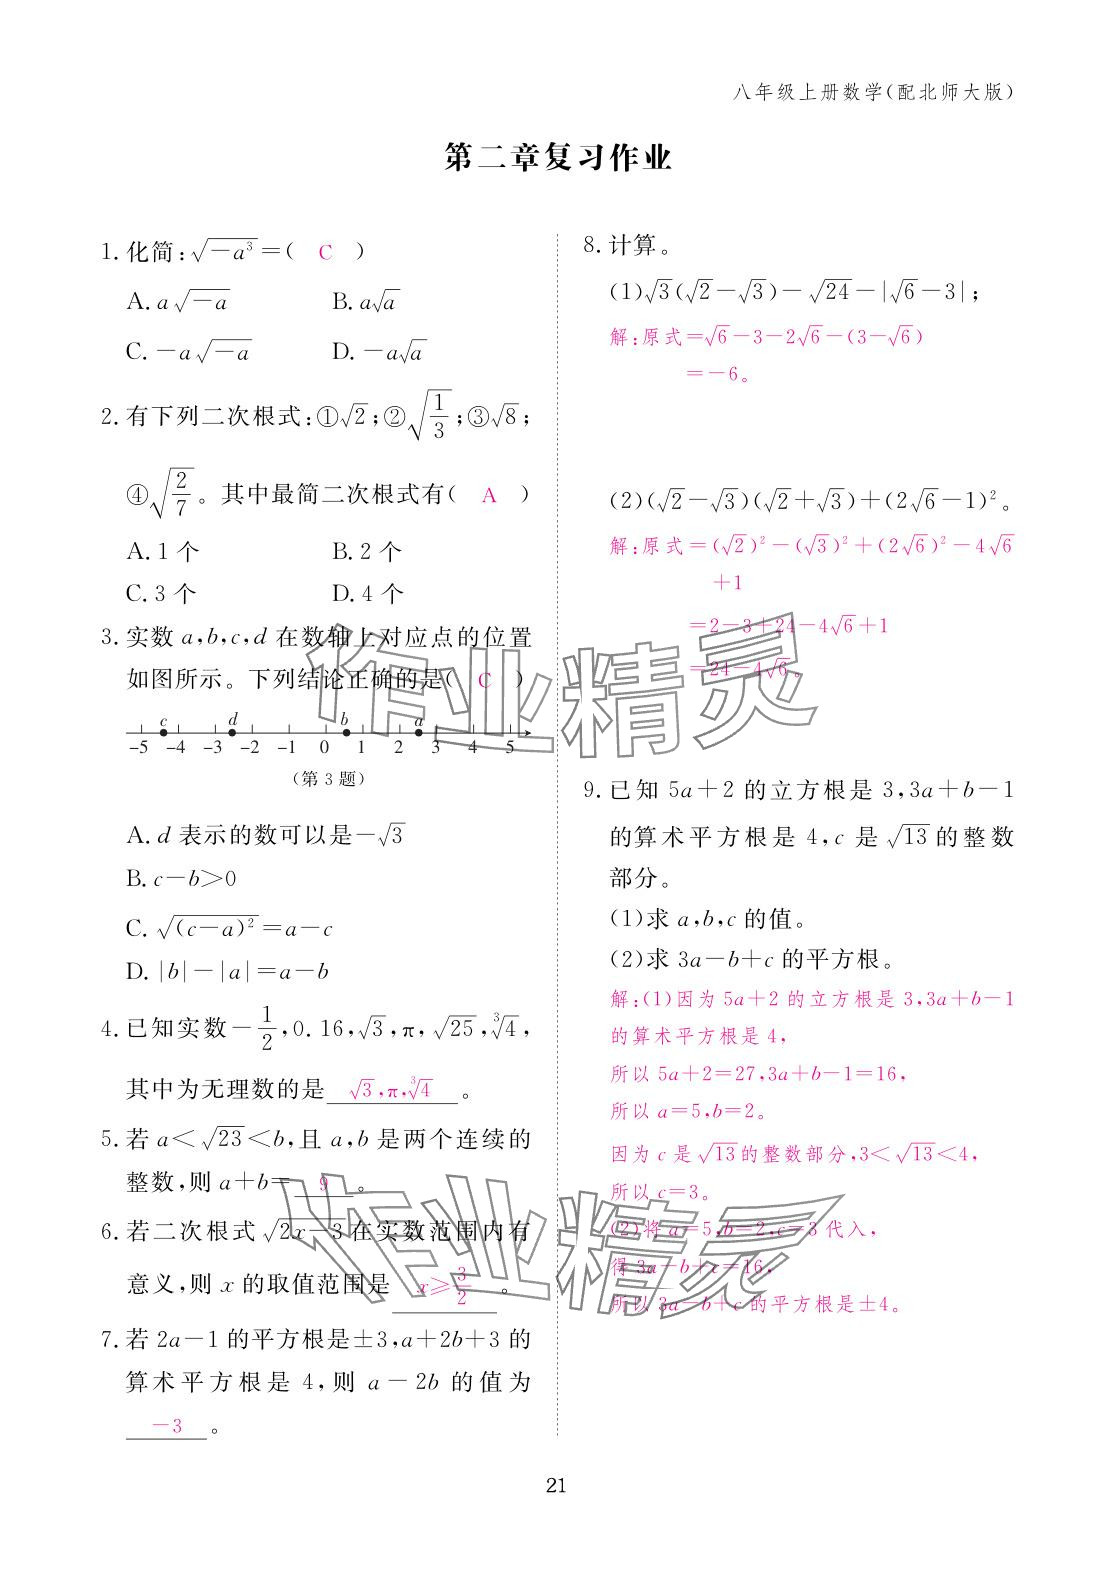 八年级上册数学(配北师大版)
第二章复习作业
1. 化简:√(-a³)=( C )
A. a√(-a) B. a√a
C. -a√(-a) D. -a√a
2. 有下列二次根式:①√2;②√(1/3);③√8;
④√(2/7)。其中最简二次根式有( A )
A. 1 个 B. 2 个
C. 3 个 D. 4 个
3. 实数 a,b,c,d 在数轴上对应点的位置
如图所示。下列结论正确的是( C )
c d b a
-5 -4 -3 -2 -1 0 1 2 3 4 5
(第 3 题)
A. d 表示的数可以是-√3
B. c-b>0
C. √((c-a)²)=a-c
D. |b|-|a|=a-b
4. 已知实数-1/2,0.16,√3,π,√25,∛4,
其中为无理数的是 √3,π,∛4 。
5. 若 a<√23<b,且 a,b 是两个连续的
整数,则 a+b= 9 。
6. 若二次根式√(2x-3)在实数范围内有
意义,则 x 的取值范围是 x≥3/2 。
7. 若 2a-1 的平方根是±3,a+2b+3 的
算术平方根是 4,则 a-2b 的值为
-3 。
8. 计算。
(1)√3(√2-√3)-√24-|√6-3|;
解:原式=√6-3-2√6-(3-√6)
=-6。
(2)(√2-√3)(√2+√3)+(2√6-1)²。
解:原式=(√2)²-(√3)²+(2√6)²-4√6
+1
=2-3+24-4√6+1
=24-4√6。
9. 已知 5a+2 的立方根是 3,3a+b-1
的算术平方根是 4,c 是√13的整数
部分。
(1)求 a,b,c 的值。
(2)求 3a-b+c 的平方根。
解:(1)因为 5a+2 的立方根是 3,3a+b-1
的算术平方根是 4,
所以 5a+2=27,3a+b-1=16,
所以 a=5,b=2。
因为 c 是√13的整数部分,3<√13<4,
所以 c=3。
(2)将 a=5,b=2,c=3 代入,
得 3a-b+c=16,
所以 3a-b+c 的平方根是±4。
作业精灵
作业精灵
21